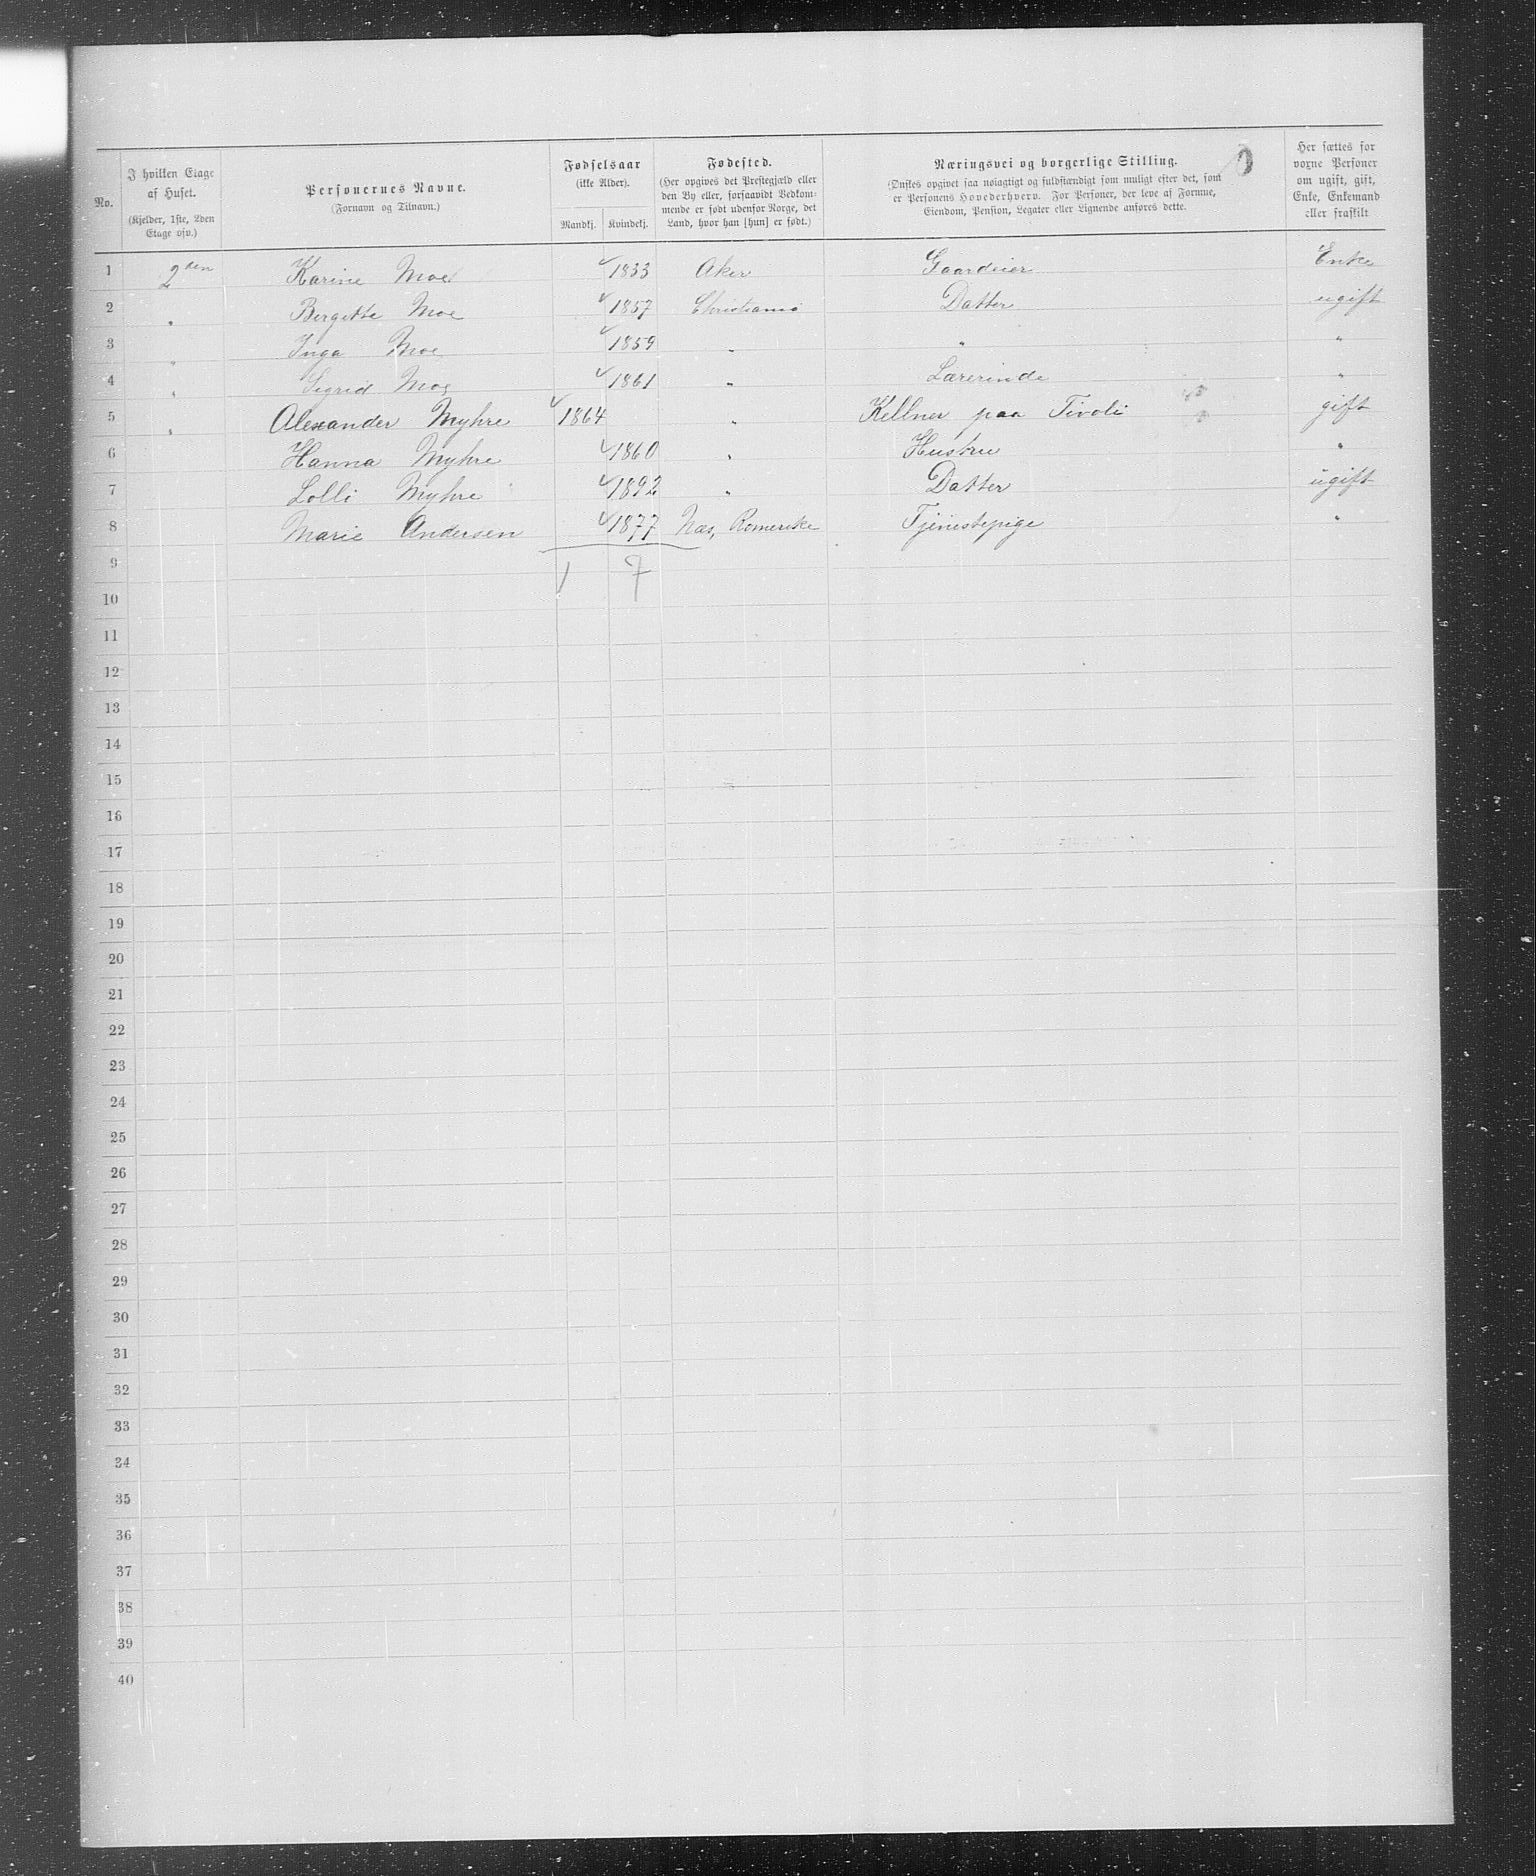 No.
I hvilken Etage af Huset.
(Kjelder, 1ste, 2den Etage osv.)
Personernes Navne.
(Fornavn og Tilnavn.)
Fødselsaar
(ikke Alder).
Mandkj.
Kvindekj.
Fødested.
(Her opgives det Prestegjæld eller
den By eller, forsaavidt Vedkom-
mende er født udenfor Norge, det
Land, hvor han [hun] er født.)
Næringsvei og borgerlige Stilling.
(Ønskes opgivet saa nøiagtigt og fuldstændigt som muligt efter det, som
er Personens Hovederhverv. For Personer, der leve af Formue,
Eiendom, Pension, Legater eller Lignende anføres dette.
Her sættes for
voxne Personer
om ugift, gift,
Enke, Enkemand
eller fraskilt
1 2den Karine Moe 1833 Aker Gaardeier Enke
2 " Birgitte Moe 1857 Christiania Datter ugift
3 " Inga Moe 1859 " " "
4 " Sigrid Moe 1861 " Lærerinde "
5 " Alexander Myhre 1864 " Kellner paa Tivoli gift
6 Hanna Myhre 1860 " Hustru "
7 Lolli Myhre 1892 " Datter ugift
8 Marie Andersen 1877 Næs, Romerike Tjenestepige "
9 1 7
10
11
12
13
14
15
16
17
18
19
20
21
22
23
24
25
26
27
28
29
30
31
32
33
34
35
36
37
38
39
40